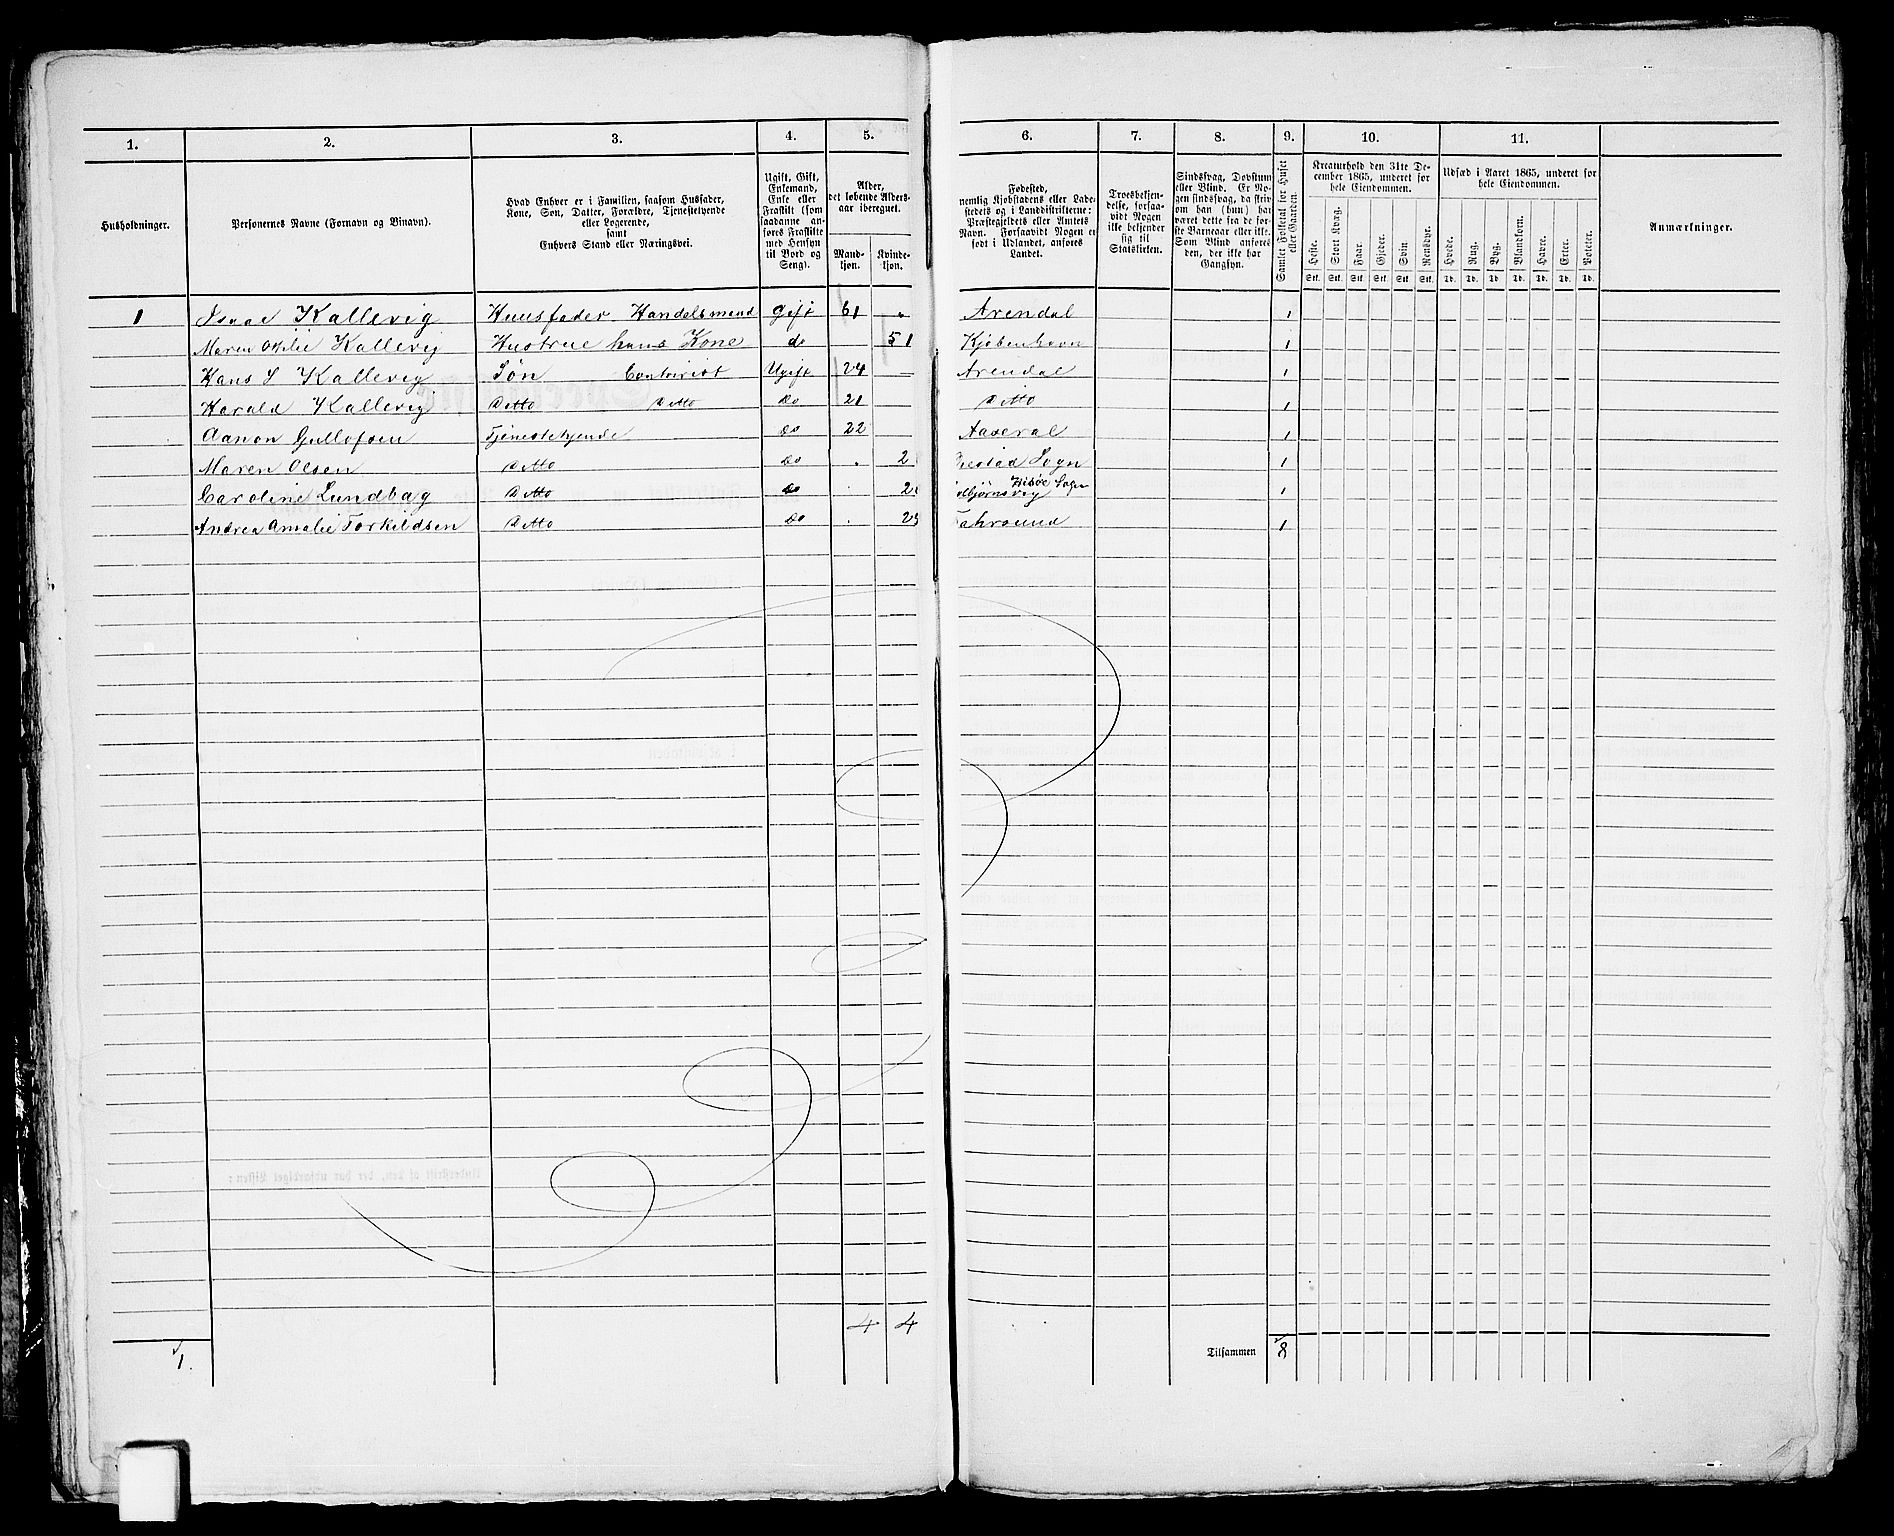 1. 2. 3. 4. 5. 6. 7. 8. 9. 10. 11.
Husholdninger.
Personernes Navne (Fornavn og Binavn).
Hvad Enhver er i Familien, saasom Husfader,
Kone, Søn, Datter, Forældre, Tjenestetyende
eller Logerende,
samt
Enhvers Stand eller Næringsvei.
Ugift, Gift,
Enkemand,
Enke eller
Fraskilt (som
saadanne an-
føres Fraskilte
med Hensyn
til Bord og
Seng).
Alder,
det løbende Alders-
aar iberegnet.
Mand-
kjøn.
Kvinde-
kjøn.
Fødested,
nemlig Kjøbstadens eller Lade-
stedets og i Landdistrikterne:
Præstegjeldets eller Amtets
Navn. Forsaavidt Nogen er
født i Udlandet, anføres
Landet.
Troesbekjen-
delse, forsaa-
vidt Nogen
ikke bekjender
sig til
Statskirken.
Sindssvag, Døvstum
eller Blind. Er No-
gen sindssvag, da skriv
om han (hun) har
været dette fra de før-
ste Barneaar eller ikke.
Som Blind anføres
den, der ikke har
Gangsyn.
Samlet Folketal for Huset
eller Gaarden.
Kreaturhold den 31te De-
cember 1865, underet for
hele Eiendommen.
Heste. Stort Kvæg. Faar. Gjeder. Svin. Rensdyr.
Stk. Stk. Stk. Stk. Stk. Stk.
Udsæd i Aaret 1865, underet for
hele Eiendommen.
Hvede. Rug. Byg. Blandkorn. Havre. Erter. Poteter.
Td. Td. Td. Td. Td. Td. Td.
Anmærkninger.
1 Isaac Kallevig Huusfader Handelsmand Gift 61 " Arendal 1
Maren Kallevig Hustrue hans Kone do 51 Kjøbenhavn 1
Hans S Kallevig Søn Contorist Ugift 24 Arendal 1
Harald Kallevig Ditto Ditto Do 21 Ditto 1
Aanon Gullofsen Tjenestetyende Do 22 Aaseral 1
Maren Olsen Ditto Do . 2 Sogn 1
Caroline Lundbag Ditto Do . 2 Hisøe Sogn 1
Andrea Amalie Torkildsen Ditto Do . 1
4 4
1. Tilsammen 8